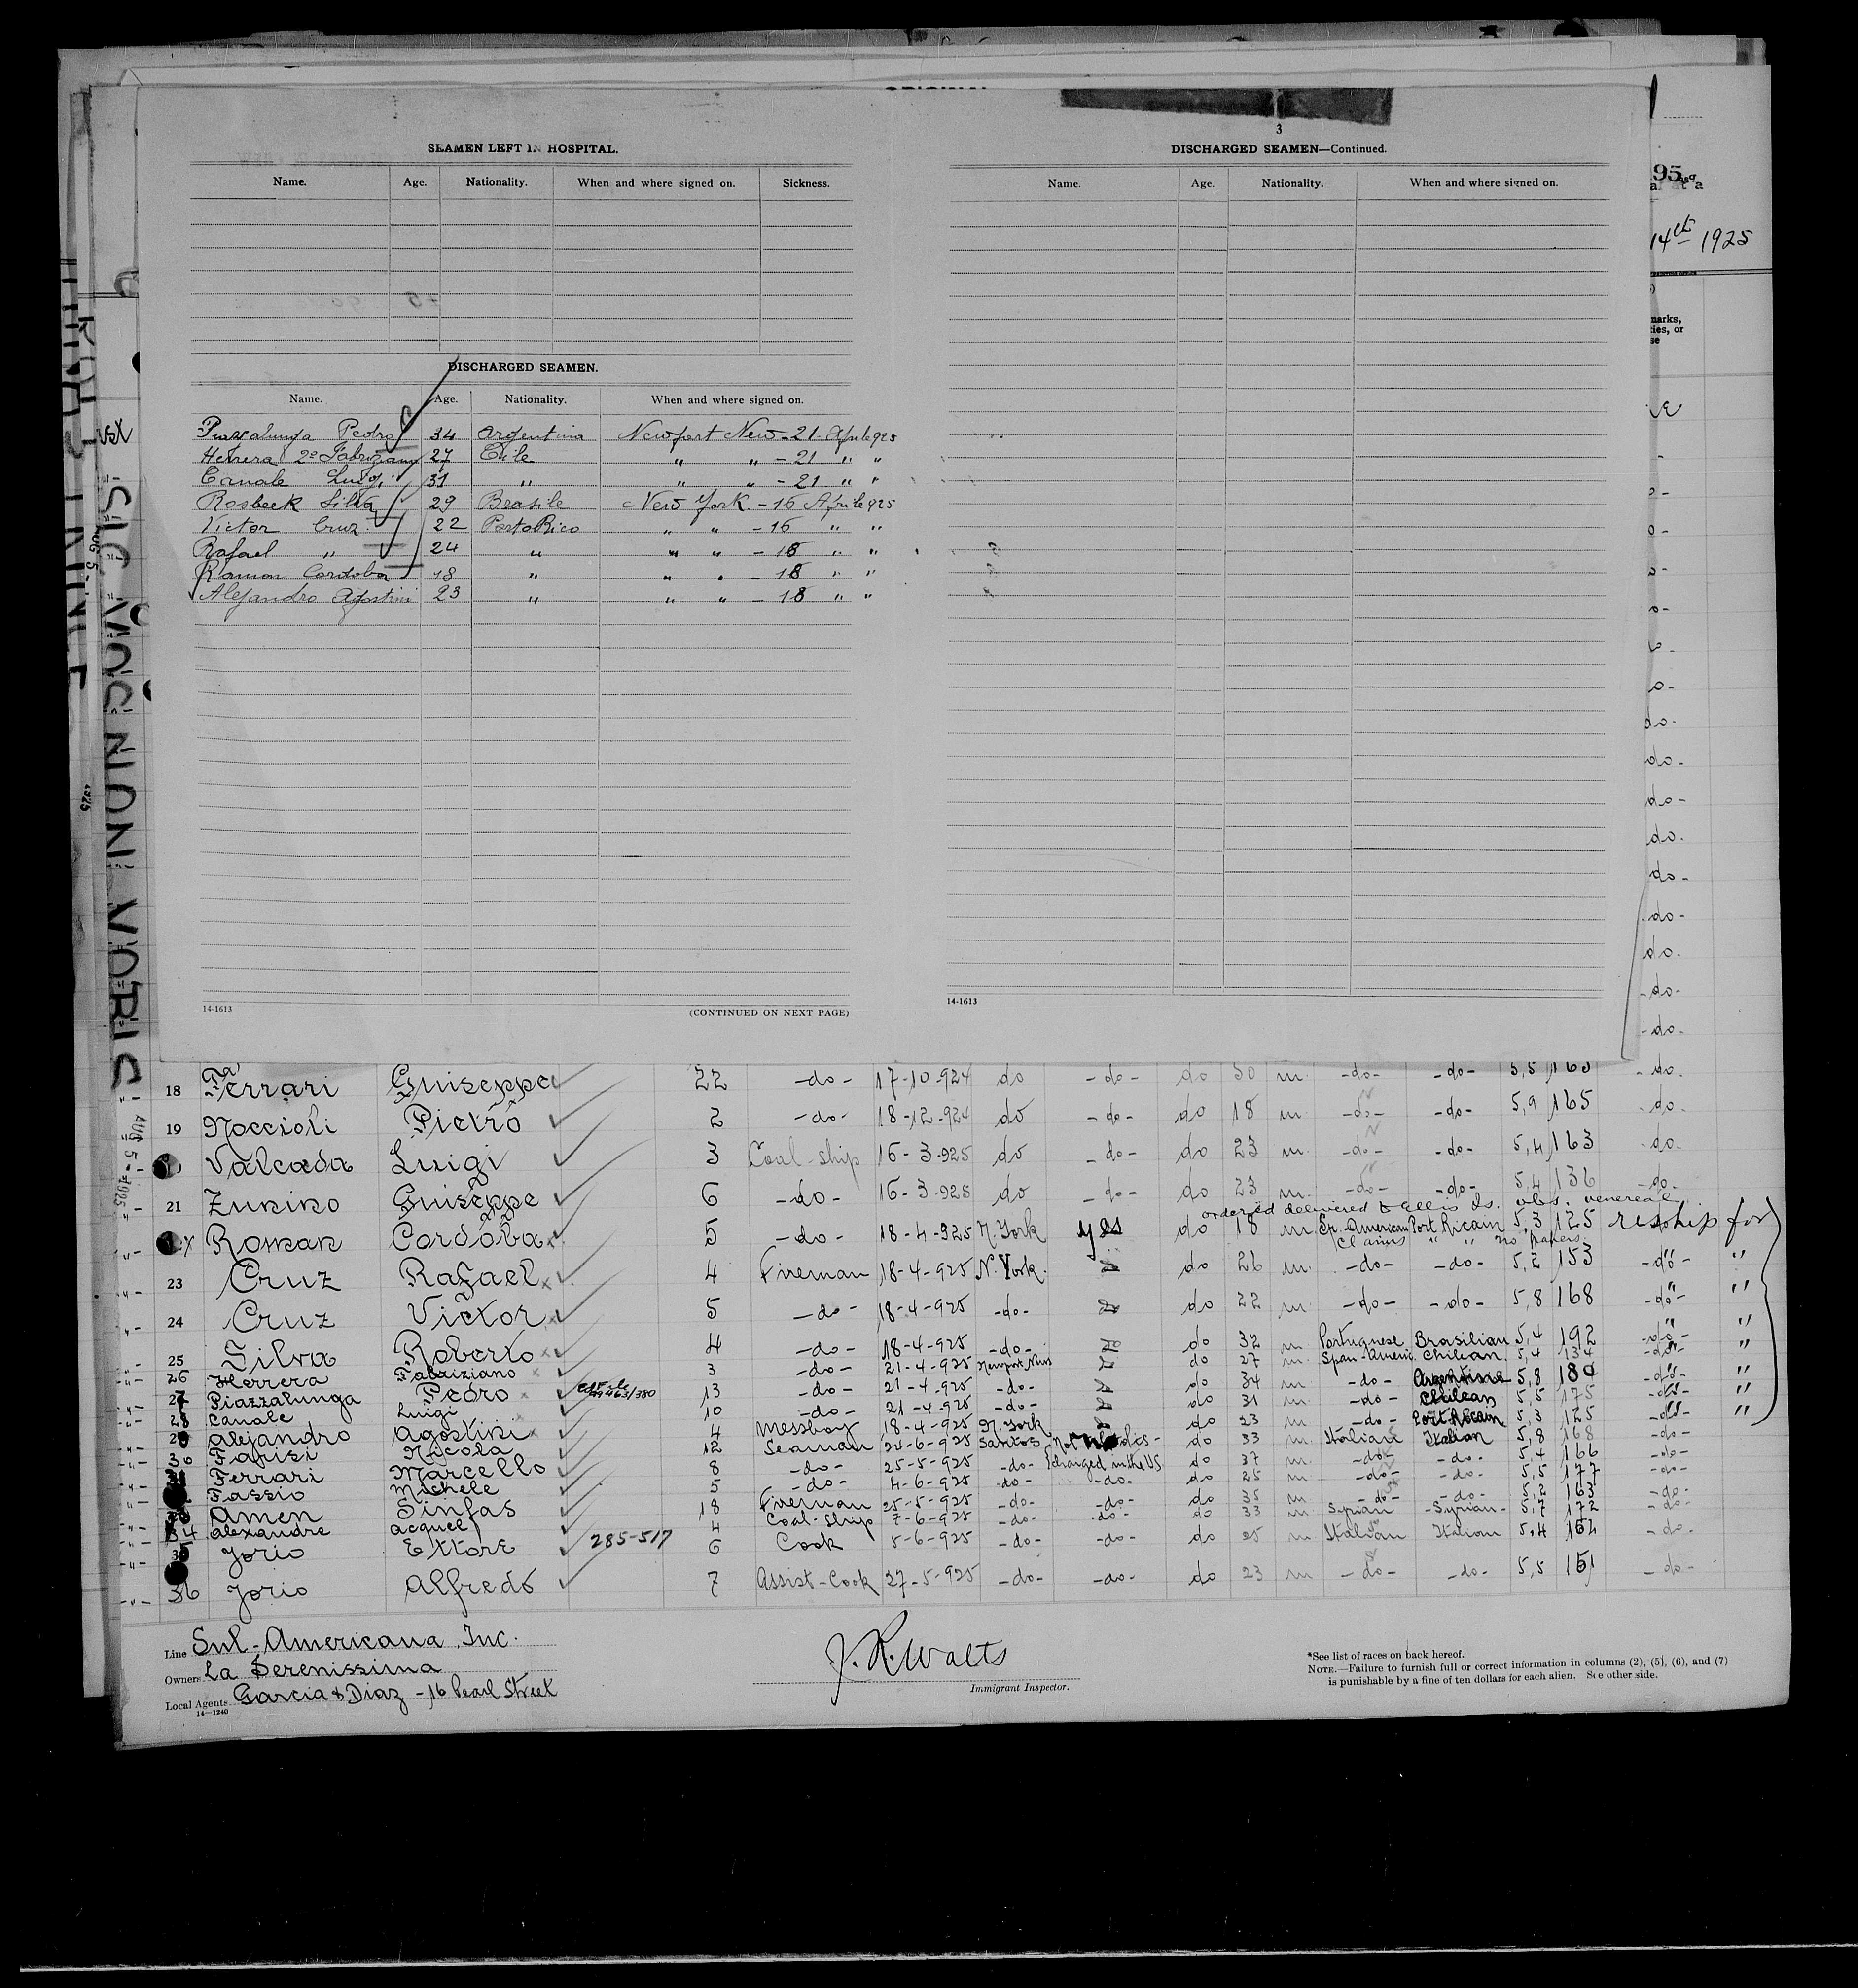 SEAMEN LEFT IN HOSPITAL.
Name. Age. Nationality. When and where signed on. Sickness.
DISCHARGED SEAMEN.
Name. Age. Nationality. When and where signed on.
Pedro 34 Argentina Newport New - 21 Aprile 925
Herrera 2º Fabriziano 27 Chile " " - 21 " "
Canale Luigi 31 " " " - 21 " "
Rosbeek Silva 29 Brasile New York - 16 Aprile 925
Victor Cruz 22 PortoRico " " - 16 " "
Rafael " 24 " " " - 18 " "
Ramon Cordoba 18 " " " - 18 " "
Alejandro Agostini 23 " " " - 18 " "
14-1613
(CONTINUED ON NEXT PAGE)
3
DISCHARGED SEAMEN—Continued.
Name. Age. Nationality. When and where signed on.
14-1613
14th 1925
18 Ferrari Guiseppe 22 -do- 17-10-924 do -do- do 30 m -do- -do- 5,5 163 -do-
19 Noccioli Pietro 2 -do- 18-12-924 do -do- do 18 m -do- -do- 5,9 165 -do-
Valcada Luigi 3 Coal-ship 16-3-925 do -do- do 23 m -do- -do- 5,4 163 do-
21 Zunino Guiseppe 6 -do- 16-3-925 do -do- do 23 m -do- -do- 5,4 136 -do-
ordered delivered to Ellis Is. obs. venereal
Roman Cordoba 5 -do- 18-4-925 N. York yes do 18 m Sp. American Port Rican 5,3 125 reship for
Claims " " no papers
23 Cruz Rafael 4 Fireman 18-4-925 N. York do 26 m -do- -do- 5,2 153 -do- "
24 Cruz Victor 5 -do- 18-4-925 -do- do 22 m -do- -do- 5,8 168 -do- "
25 Silva Roberto 4 -do- 18-4-925 -do- do 32 m Portuguese Brasilian 5,4 192 -do- "
26 Herrera Fabriziano 3 -do- 21-4-925 Newport News do 27 m Span-Americ. Chilean 5,4 134 -do- "
27 Piazzalunga Pedro 99463/380 13 -do- 21-4-925 -do- do 34 m -do- Argentine 5,8 180 -do- "
28 Canale Luigi 10 -do- 21-4-925 -do- do 31 m -do- Chilean 5,5 175 -do- "
29 Alejandro Agostini 4 Messboy 18-4-925 N. York do 23 m -do- Port Rican 5,3 125 -do- "
30 Farisi Nicola 12 Seaman 24-6-925 Santos Not to be disdo 33 m Italian Italian 5,8 168 -do-
Ferrari Marcello 8 -do- 25-5-925 -do- charged in the U.S. do 37 m -do- -do- 5,4 166 -do-
Fassio Michele 5 -do- 4-6-925 -do- -do- do 25 m -do- -do- 5,5 177 -do-
Amen Sinfas 18 Fireman 25-5-925 -do- -do- do 35 m -do- -do- 5,2 163 -do-
34 Alexandre Acquel 4 Coal-Ship 7-6-925 -do- -do- do 33 m Syrian -Syrian- 5,7 172 -do-
35 Jorio Ettore 285-517 6 Cook 5-6-925 -do- -do- do 25 m Italian Italian 5,4 152 -do-
36 Jorio Alfredo 7 Assist-Cook 27-5-925 -do- -do- do 23 m -do- -do- 5,5 151 -do-
Line Sul-Americana, Inc.
Owners La Serenissima
Local Agents Garcia & Diaz - 16 Pearl Street
14—1240
J. R. Walts
Immigrant Inspector.
*See list of races on back hereof.
NOTE.—Failure to furnish full or correct information in columns (2), (5), (6), and (7)
is punishable by a fine of ten dollars for each alien. See other side.